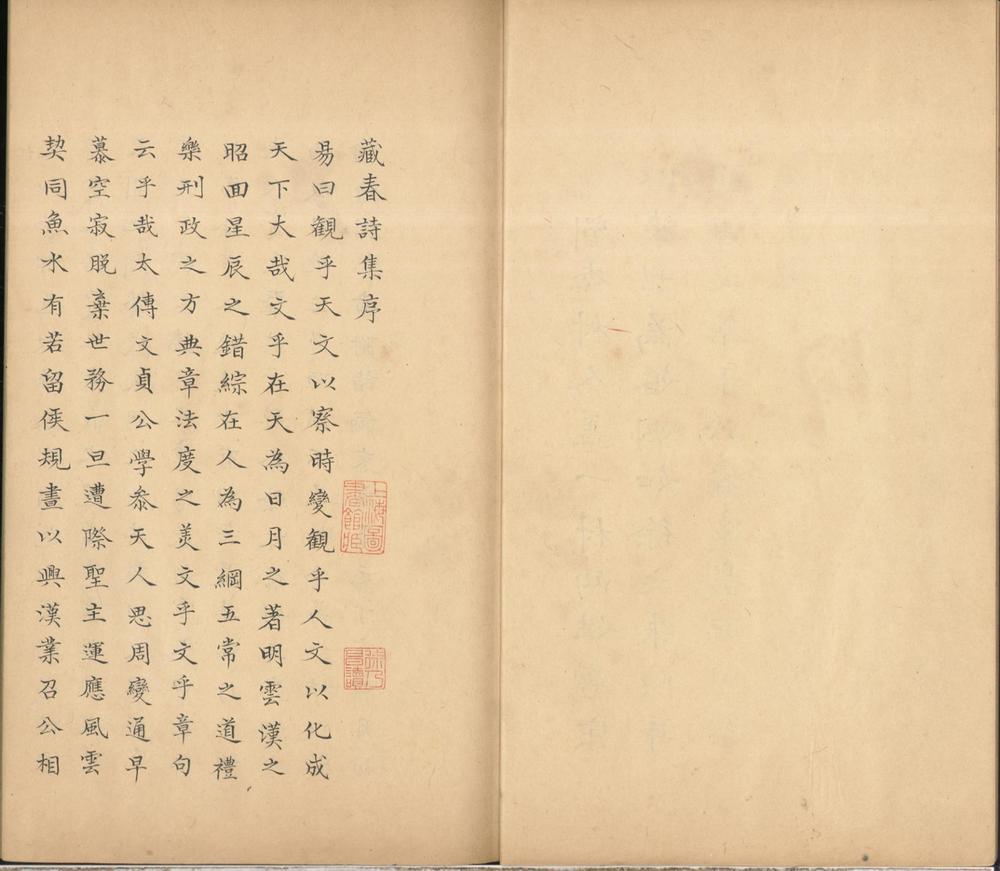 藏春詩集序
易曰觀乎天文以察時變觀乎人文以化成
天下大哉文乎在天為日月之著明雲漢之
昭回星辰之錯綜在人為三綱五常之道禮
樂刑政之方典章法度之美文乎文乎章句
云乎哉太傅文貞公學叅天人思周變通早
慕空寂脱棄世務一旦遭際聖主運應風雲
契同魚水有若留侯規畫以興漢業召公相
上海圖
書館臧
徐乃
昌讀